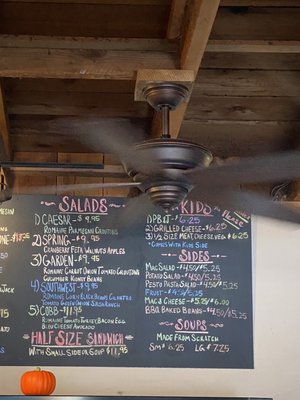 SALADS
1) CAESAR - $9.95
ROMAINE PARMESAN CROUTONS
2) SPRING - $9.95
CRANBERRY FETA WALNUTS APPLES
3) GARDEN - $9.95
ROMAINE CARROT ONION TOMATO CROUTONS
CUCUMBER KIDNEY BEANS
4) SOUTHWEST - $9.95
ROMAINE CORN BLACK BEANS CILANTRO
TOMATOES GREEN ONION
RANCH
5) COBB - $11.95
ROMAINE TOMATO TURKEY BACON EGG
BLEU CHEESE AVOCADO
HALF SIZE SANDWICH
WITH SMALL SIDE OR SOUP $11.95
KIDS
1) PB&J $6.25
2) GRILLED CHEESE $6.25
3) ½ SIZE MEAT/CHEESE $6.25
COMES WITH KIDS SIDE
SIDES
MAC SALAD $4.50/5.25
POTATO SALAD $4.50/5.25
PESTO PASTA SALAD $4.50/5.25
FRUIT $4.50/5.25
MAC & CHEESE $5.25/6.00
BBQ BAKED BEANS $4.50/5.25
SOUPS
MADE FROM SCRATCH
SM $6.25 LG $7.25